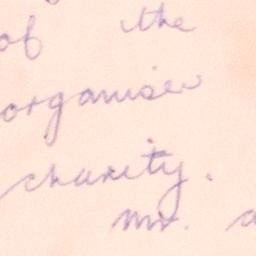 of the
organiser
charity.
Mr. a